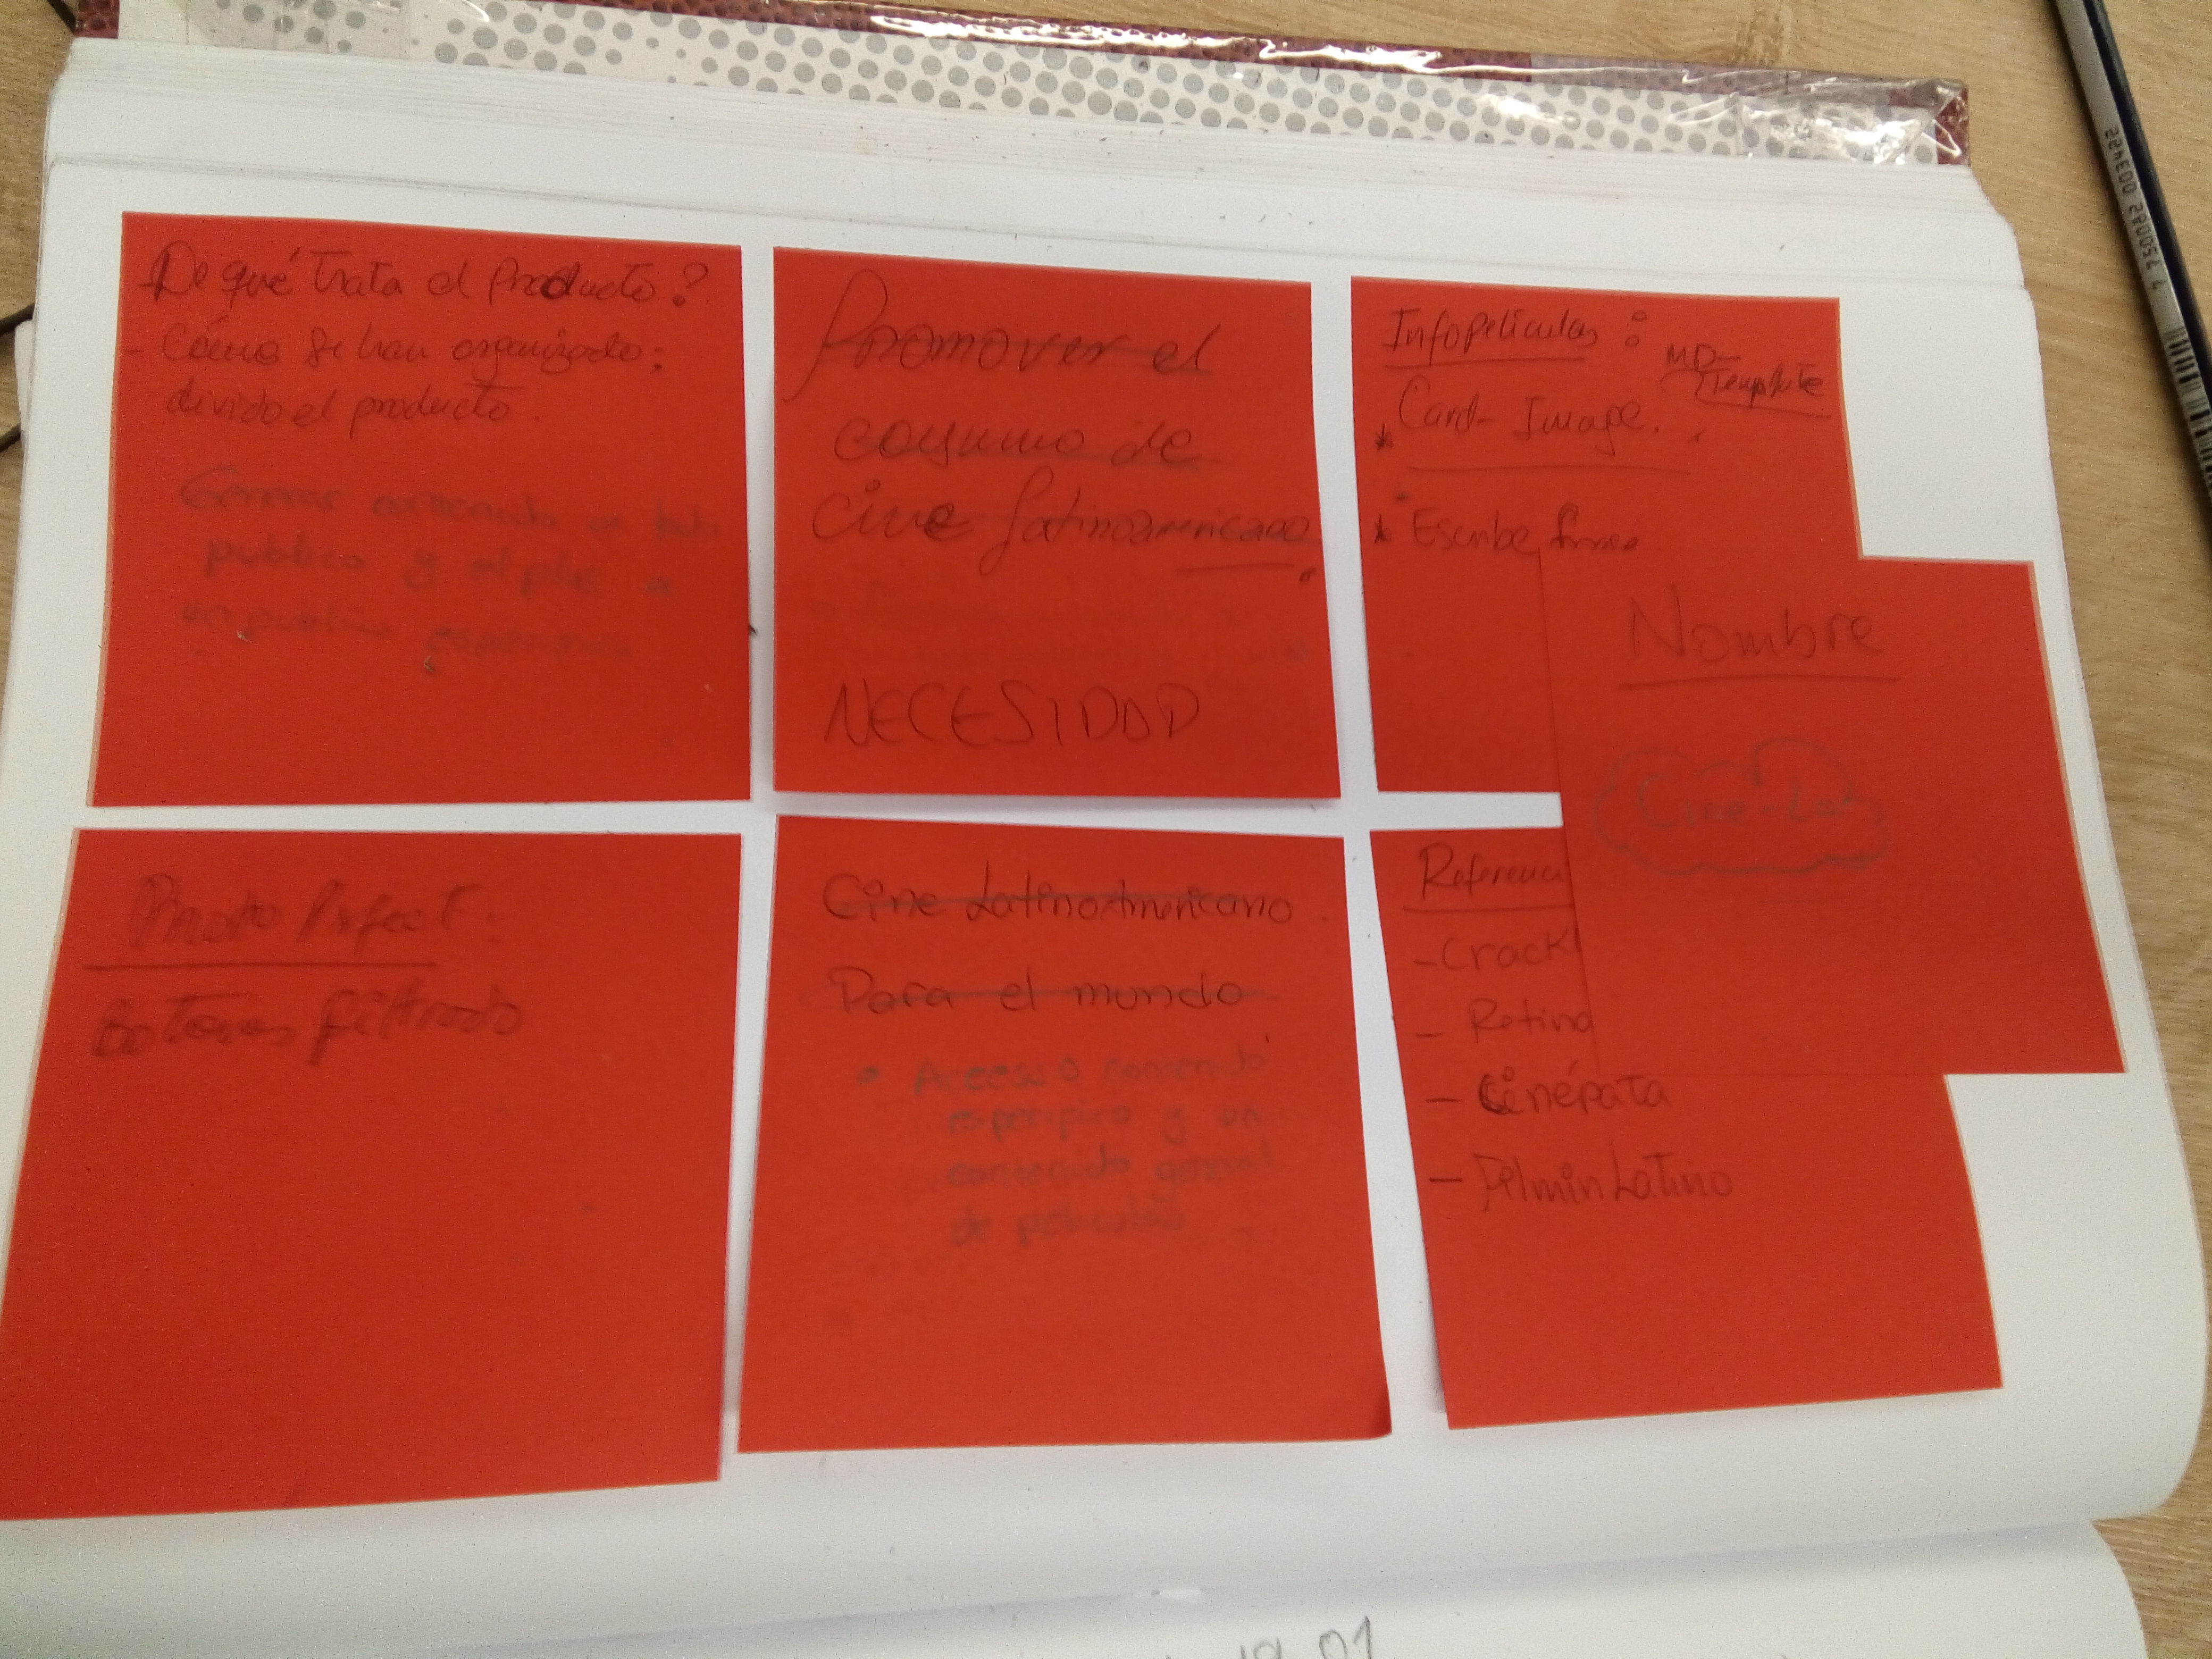 De qué trata el Producto?
- Cómo se han organizado;
divido el producto.
Generar contenido
publico y
un publico
Promover el
consumo de
cine Latinoamericano.
NECESIDAD
Infopelículas :
MD-
Template
* Card-Image.
* Escribe
Nombre
Cine-Lat
Botones
Cine LatinoAmericano.
Para el mundo
• Acceso contenido
especifico y un
contenido general
de peliculas
Referenci
- Crack
- Retina
- Cinépata
- FilminLatino
01
7 750082 003422